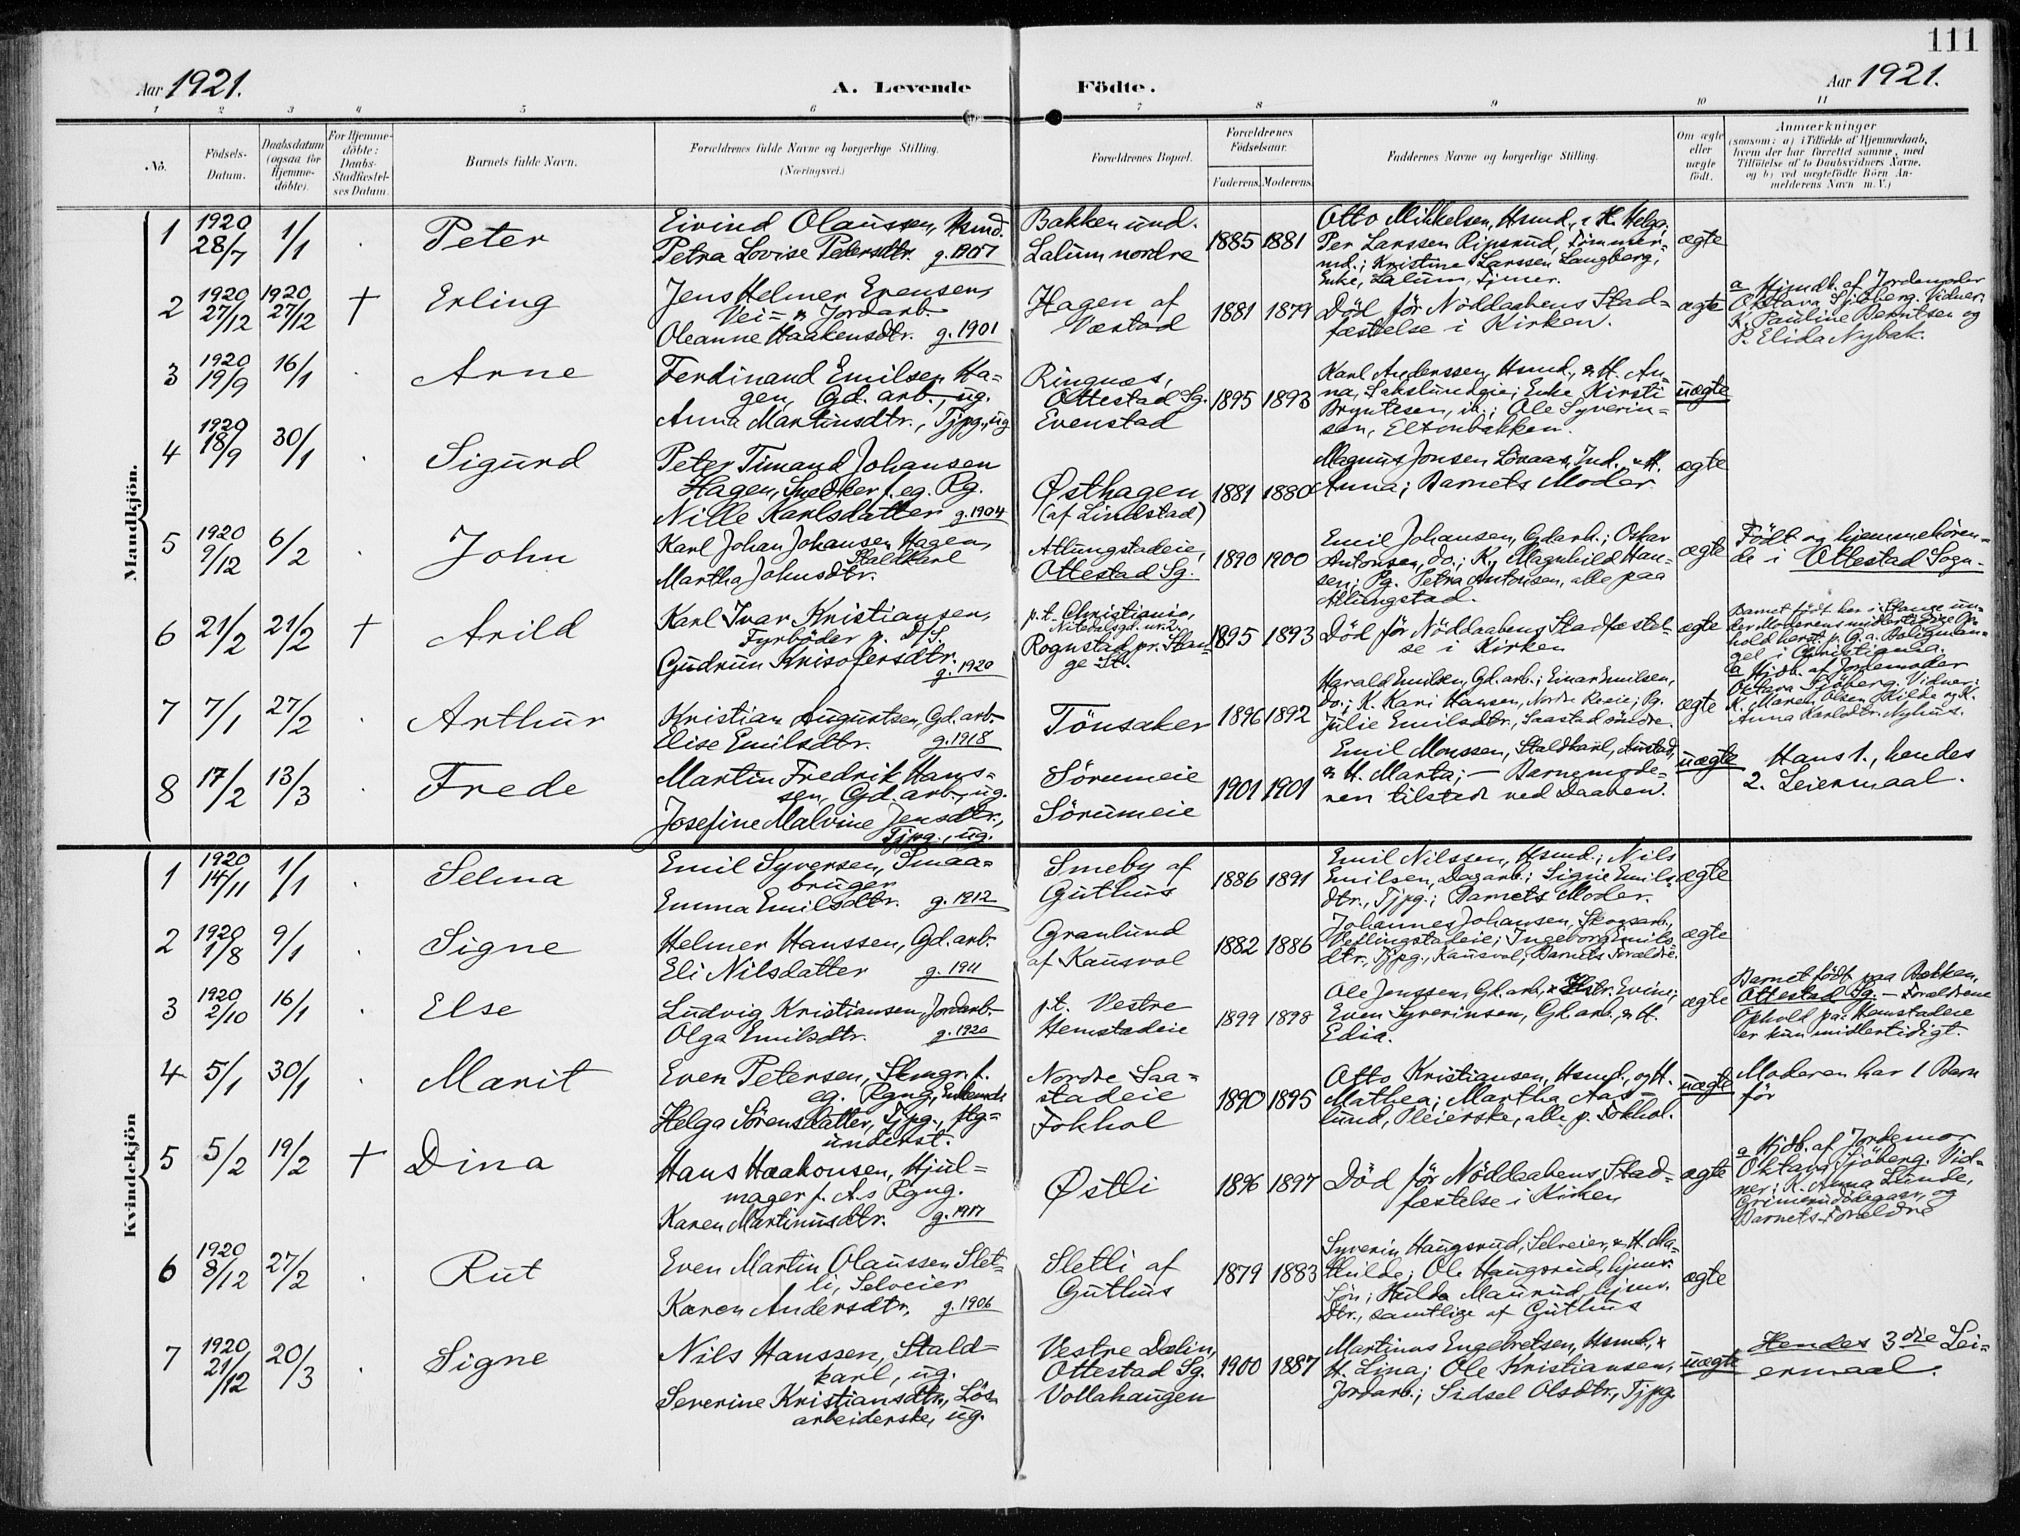 111
Aar 1921.
A. Levende
Födte.
Aar 1921.
1 2 3 4 5 6 7 8 9 10 11
No.
Födsels-
Datum.
Daabsdatum
(ogsaa for
Hjemme-
döbte).
For Hjemme-
döbte:
Daabs-
Stadfæstel-
ses Datum.
Barnets fulde Navn.
Forældrenes fulde Navne og borgerlige Stilling.
(Næringsvei.)
Forældrenes Bopæl.
Forældrenes
Födselsaar.
Faderens. Moderens.
Faddernes Navne og borgerlige Stilling.
Om ægte
eller
uægte
født.
Anmærkninger
(saasom: a) i Tilfælde af Hjemmedaab,
hvem der har forrettet samme, med
Tilföielse af to Daabsvidners Navne,
og b) ved uægtefödte Börn An-
melderens Navn m. V.)
Mandkjön.
1
1920
28/7
1/1
Peter
Eivind Olaussen, Hsmd.
Petra Lovise Pedersdtr. g. 1907
Bakken und.
Lalum nordre
1885 1881
Otto Mikkelsen, Hsmd., & H. Helga;
Per Larssen Ripsrud, Tömmer-
md.; Kristine Larssen Langberg,
Enke, Lalum, Tjener.
ægte
2
1920
27/12
1920
27/12
+
Erling
Jens Helmer Evensen,
Vei- & Jordarb.
Oleanne Haakensdtr. g. 1901
Hagen af
Væstad
1881 1879
Död för Nöddaabens Stad-
fæstelse i Kirken.
ægte
a Hjmdb. af Jordemoder
Oktava Sjöberg. Vidner:
K. Pauline Berntsen og
P. Elida Nybak.
3
1920
19/9
16/1
Arne
Ferdinand Emilsen Ha-
gen, Gd. arb., ug.
Anna Martinsdtr., Tjpg., ug
Ringnes,
Ottestad Sg.
Evenstad
1895 1893
Karl Anderssen, Hsmd., & H. An-
na, Sakslundeie; Enke Kirsti
Bryntesen, ib.; Ole Syverin-
sen, Eltonbakken.
uægte
4
1920
18/9
30/1
Sigurd
Peter Timand Johansen
Hagen, Snedker f. eg. Rg.
Nille Karlsdatter g. 1904
Østhagen
(af Lindstad)
1881 1880
Magnus Jonsen Lövaas, Ind. & H.
Anna; Barnets Moder
ægte
5
1920
9/12
6/2
John
Karl Johan Johansen Hagen,
Staldkarl
Martha Johnsdtr.
Atlungstadeie,
Ottestad Sg.
1890 1900
Emil Johansen, Gdarb.; Oskar
Antonsen, do.; K. Magnhild Han-
sen; Pg. Petra Antonsen, alle paa
Atlungstad.
ægte
Födt og hjemmehören-
de i Ottestad Sogn.
6
21/2
21/2
+
Arild
Karl Ivar Kristiansen,
Fyrböder p. D/S.
Gudrun Krisofersdtr.
g. 1920
p.t. Christiania,
Nitedalsgd. nr. 2.
Rognstad pr. Stan-
ge St.
1895 1893
Död för Nöddaabens Stadfæstel-
se i Kirken
ægte
Barnet födt her i Stange un-
der Moderens midlertidige Op-
hold herst. p. G. a. Boligman-
gel i Christiania.
a Hjdb. af Jordemoder
Oktava Sjöberg. Vidner:
K. Maren Olsen Kilde og K.
Anna Karlsdtr. Nyhus.
7
7/1
27/2
Arthur
Kristian Augustsen, Gd. arb.
Elise Emilsdtr. g. 1918
Tönsaker
1896 1892
Harald Emilsen, Gd. arb.; Einar Emilsen,
do.; K. Kari Hansen, Nordre Røeie; Pg.
Julie Emilsdtr., Saastad söndre.
ægte
8
17/2
13/3
Frede
Martin Fredrik Hans-
sen, Gd. arb., ug.
Josefine Malvine Jensdtr.,
Tjpg., ug.
Sörumeie
Sörumeie
1901 1901
Emil Monssen, Staldkarl,
& H. Marta; — Barnemode-
ren tilsted ved Daaben.
uægte
Hans 1., hendes
2. Leiermaal.
Kvindekjön
1
1920
14/11
1/1
Selma
Emil Syversen, Smaa-
bruger
Emma Emilsdtr. g. 1912
Smeby af
Guthus
1886 1891
Emil Nilssen, Hsmd.; Nils
Emilsen, Dagarb.; Signe Emils-
dtr., Tjpg.; Barnets Moder.
ægte
2
1920
1/8
9/1
Signe
Helmer Hanssen, Gd. arb.
Eli Nilsdatter g. 1911
Granlund
af Kausvol
1882 1886
Johannes Johansen, Skogsarb.,
Veflingstadeie; Ingeborg Emils-
dtr., Tjpg., Kausvol; Barnets Forældre.
ægte
3
1920
2/10
16/1
Else
Ludvig Kristiansen, Jordarb.
Olga Emilsdtr. g. 1920
p.t. Vestre
Hemstadeie
1899 1898
Ole Jenssen, Gd. arb., & Hstr. Evine;
Even Syverinsen, Gd. arb., & H.
Edia.
ægte
Barnet födt paa Bekken,
Ottestad Sg. — Forældrene
Ophold paa Hemstadeie
er kun midlertidigt.
4
5/1
30/1
Marit
Even Petersen, Skmgr. f.
eg. Rgng, Enkemd.
Helga Sörensdatter, Tjpg., ftg-
underst.
Nordre Saa-
stadeie
Fokhol
1890 1895
Otto Kristiansen, Hsmd., og H.
Mathea; Martha Aas-
lund, Pleierske, alle p. Fokhol.
uægte
Moderen har 1 Barn
för
5
5/2
19/2
+
Dina
Hans Haakonsen, Hjul-
mager f. A.s Rgng.
Karen Martinusdtr. g. 1917
Østli
1896 1897
Död för Nöddaabens Stad-
fæstelse i Kirken
ægte
a Hjdb. af Jordemor
Oktava Sjöberg. Vid-
ner: K. Anna Linde,
Grimerudödegaar, og
Barnets Forældre
6
1920
8/12
27/2
Rut
Even Martin Olaussen Slet-
li, Selveier
Karen Andersdtr. g. 1906
Sletli af
Guthus
1879 1883
Syverin Haugsrud, Selveier, & H. Ma-
thilde; Ole Haugsrud, hjmv.
Sön; Hulda Maurud, hjmv.
Dtr., samtlige af Guthus
ægte
7
1920
21/12
20/3
Signe
Nils Hanssen, Stald-
karl, ug.
Severine Kristiansdtr., Lös-
arbeiderske, ug.
Vestre Dælin,
Ottestad Sg.
Vollahaugen
1900 1887
Martinus Engebretsen, Hsmd., &
H. Lina; Ole Kristiansen,
Jordarb.; Sidsel Olsdtr., Tjpg.
uægte
Hendes 3die Lei-
ermaal.